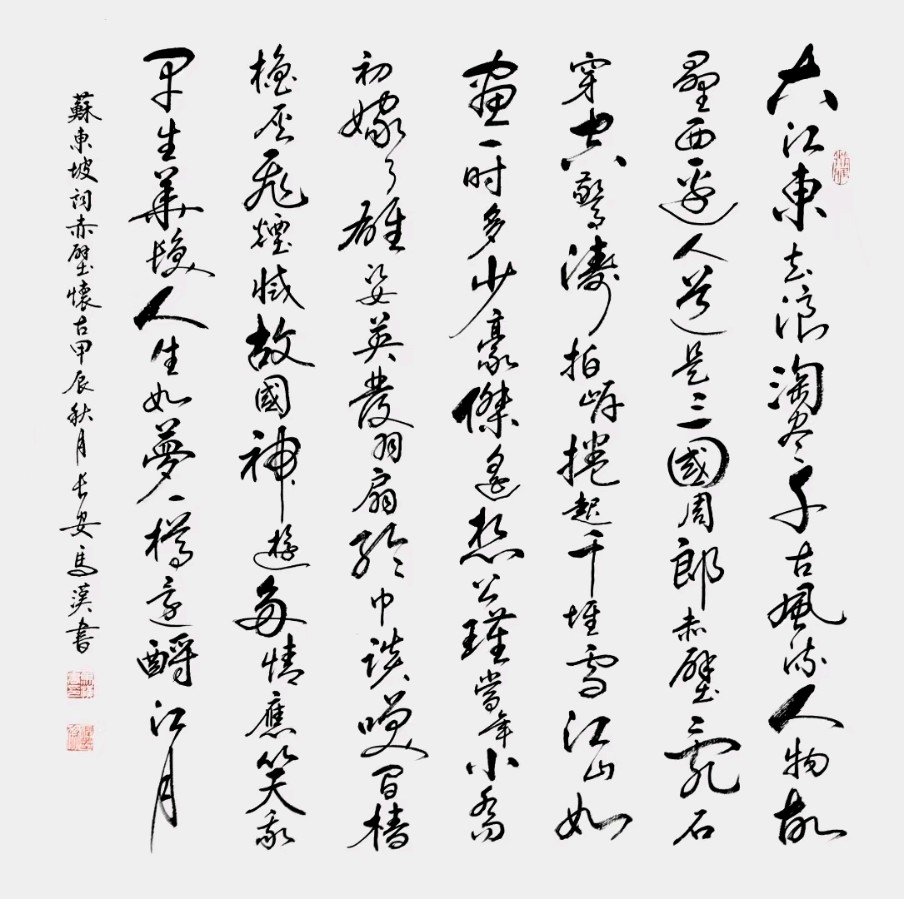 大江東去浪淘尽千古風流人物故
壘西邊人道是三國周郎赤壁亂石
穿空驚濤拍岸捲起千堆雪江山如
畫一時多少豪傑遙想公瑾當年小喬
初嫁了雄姿英發羽扇綸巾談咲間檣
櫓灰飛煙滅故國神遊多情應笑我
早生華髮人生如夢一樽還酹江月
蘇東坡詞赤壁懷古甲辰秋月長安馬漢書